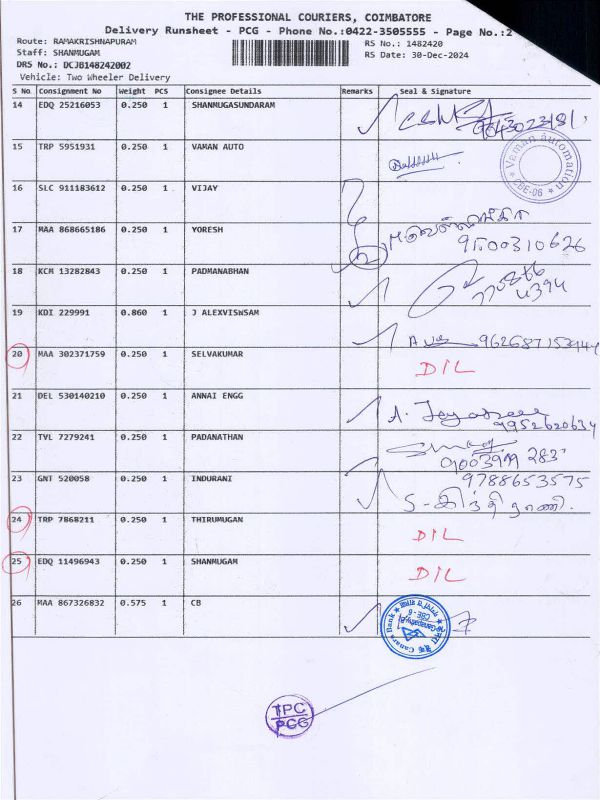 THE PROFESSIONAL COURIERS, COIMBATORE
Delivery Runsheet - PCG - Phone No.:0422-3505555 - Page No.:2
Route: RAMAKRISHNAPURAM
RS No.: 1482420
Staff: SHANMUGAM
RS Date: 30-Dec-2024
DRS No.: DCJB148242002
Vehicle: Two Wheeler Delivery
S No. Consignment No Weight PCS Consignee Details Remarks Seal & Signature
14 EDQ 25216053 0.250 1 SHANMUGASUNDARAM
15 TRP 5951931 0.250 1 VAMAN AUTO
Vaman automation
CBE-06
16 SLC 911183612 0.250 1 VIJAY
17 MAA 868665186 0.250 1 YORESH
9500310626
18 KCM 13282843 0.250 1 PADMANABHAN
4394
19 KDI 229991 0.860 1 J ALEXVISWSAM
20 MAA 302371759 0.250 1 SELVAKUMAR
DIL
21 DEL 530140210 0.250 1 ANNAI ENGG
9952620634
22 TVL 7279241 0.250 1 PADANATHAN
23 GNT 520058 0.250 1 INDURANI
9788653575
24 TRP 7868211 0.250 1 THIRUMUGAN
DIL
25 EDQ 11496943 0.250 1 SHANMUGAM
DIL
26 MAA 867326832 0.575 1 CB
Canara Bank
TPC
PCG